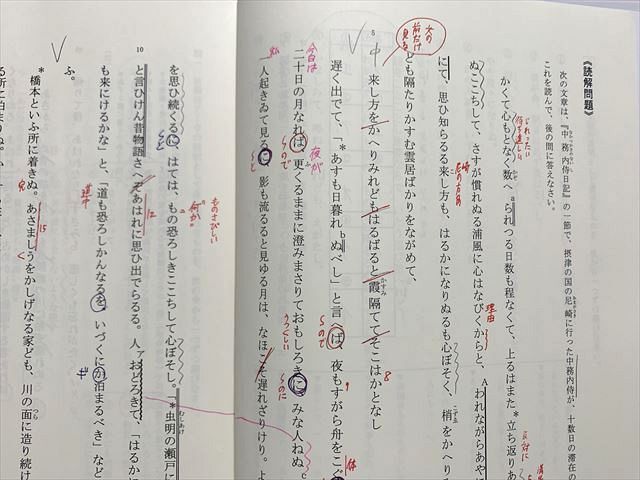 《読解問題》
次の文章は、『中務内侍日記』の一節で、摂津の国の尼崎に行った中務内侍が、十数日の滞在の
これを読んで、後の問に答えなさい。
かくて心もとなく数へられつる日数も程なくて、上るはまた*立ち返りあ
ぬここちして、さすが慣れぬる浦風に心はなびくからと、Aわれながらあやに
にて、思ひ知らるる来し方も、はるかになりぬるも心ぼそく、梢をかへり
ども隔たりかすむ雲居ばかりをながめて、
5
来し方をかへりみれどもはるばると霞隔ててそこはかとなし
遅く出でて、「*あすも日暮れぬべし」と言へば、夜もすがら舟をこぐ
二十日の月なれば、更くるままに澄みまさりておもしろきに、みな人ねぬ
一人起きゐて見るに、影も流るると見ゆる月は、なほこそ遅れざりけり。よ
を思ひ続くるに、はては、もの恐ろしきここちして心ぼそし。「*虫明の瀬戸に
10
と言ひけん昔物語さへぞあはれに思ひ出でらるる。人おどろきて、「はるか
も来にけるかな」と、「道も恐ろしかんなるを、いづくにか泊まるべき」など
ふ。
*橋本といふ所に着きぬ。あさましうをかしげなる家ども、川の面に造り続け
る所に泊まりぬ。
次の
前だけ
見る
今日は
夜が
うつくしい
ので
のに
理由
ものさびしい
何か
道中